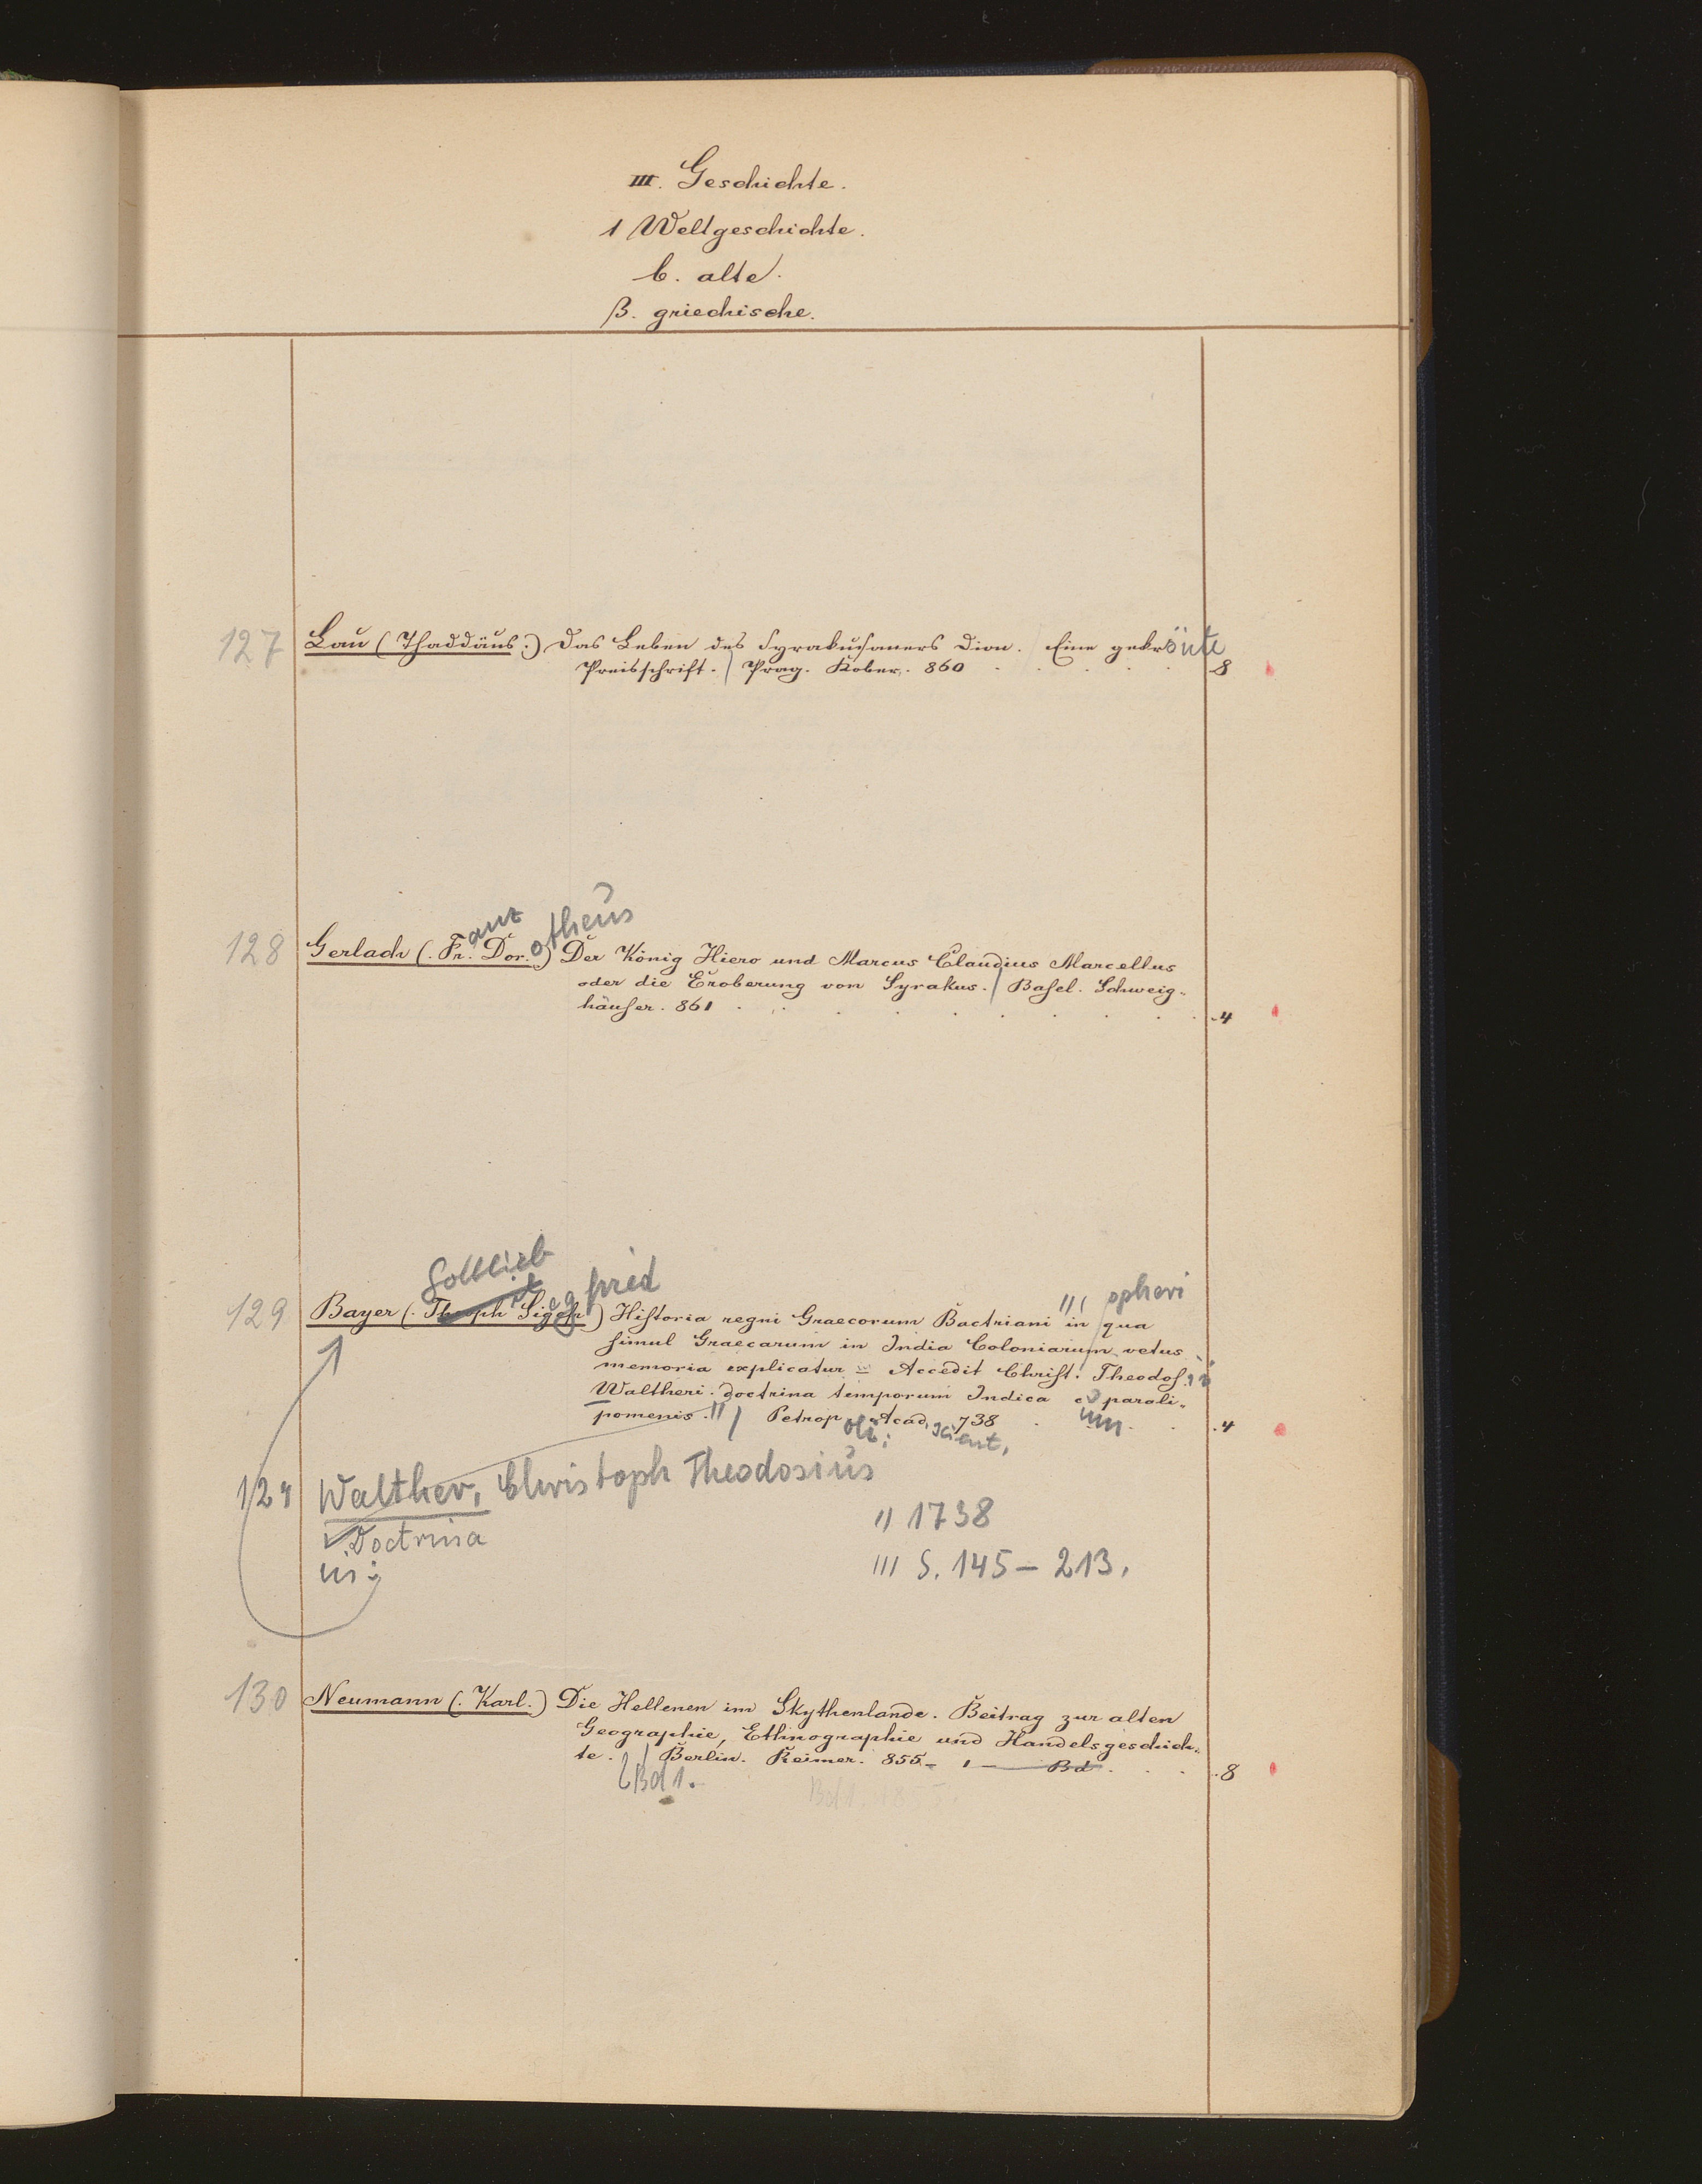 III. Geschichte.
1 Weltgeschichte.
b. alte.
β. griechische.
127 Lau (Thaddäus.) Das Leben des Syrakusaners Dion. / Eine gekrönte
Preisschrift. / Prag. Kober. 860 . . . . . 8
anz otheus
128 Gerlach (. Fr. Dor.) Der König Hiero und Marcus Claudius Marcellus
oder die Eroberung von Syrakus. / Basel. Schweig-
häuser. 861 . . . . . . . . . 4
Gottlieb
egfried /// opheri
129 Bayer (. Theoph Sigefr.) Historia regni Graecorum Bactriani in qua
simul Graecarum in India Coloniarum vetus
memoria explicatur = Accedit Christ. Theodos.
Waltheri. doctrina temporum Indica c parali-
pomenis. // / Petrop. Acad. 738 . um . . 4
oli; scient,
129 Walther, Christoph Theodosius
Doctrina // 1738
in: /// S. 145 – 213.
130 Neumann (. Karl.) Die Hellenen im Skythenlande. Beitrag zur alten
Geographie, Ethnographie und Handelsgeschich-
te. / Berlin. Reimer. 855 – 1 – Bd . . . 8
Bd 1. Bd 1. 1855.